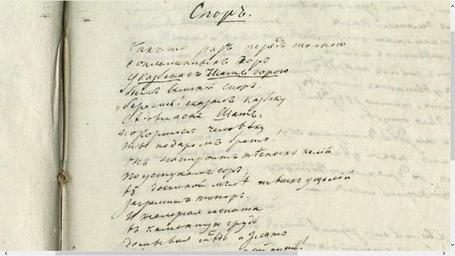 Споръ.
Какъ то разъ передъ толпою
соплеменныхъ горъ
У Казбека съ Шатъ горою
былъ великій споръ.
берегись! сказалъ Казбеку
Шатъ.
покорился человѣку
ты недаромъ братъ.
Онъ настроитъ келій
по уступамъ горъ;
въ твоихъ ущелій
загремитъ топоръ.
И желѣзная лопата
въ каменную грудь
добывая мѣдь и злато
путь!